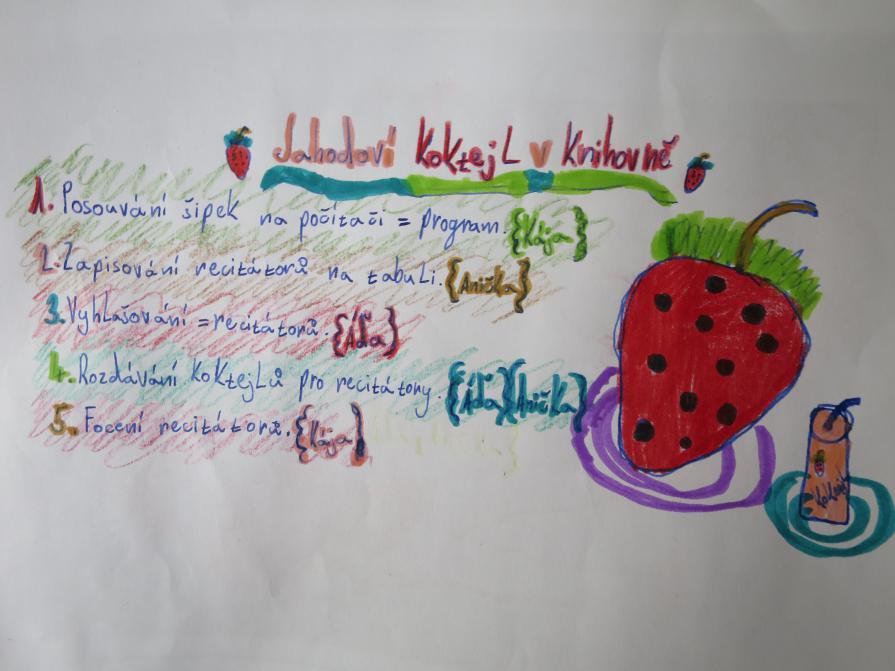 Jahodoví Koktejl v knihovně
1. Posouvání šipek na počítači = program. {Kája}
2. Zapisování recitátorů na tabuli. {Anička}
3. Vyhlašování = recitátorů. {Áďa}
4. Rozdávání koktejlů pro recitátory. {Áďa} {Anička}
5. Focení recitátorů. {Kája}
Koktejl